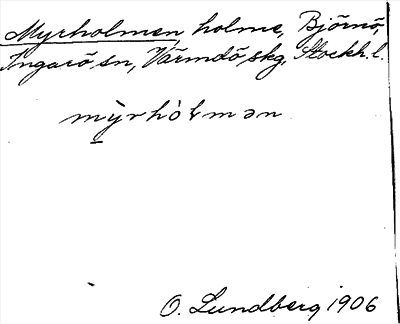 Myrholmen, holme, Björnö,
Ingarö sn, Värmdö skg, Stockh. l.
my̆rhòɫmən
O. Lundberg 1906